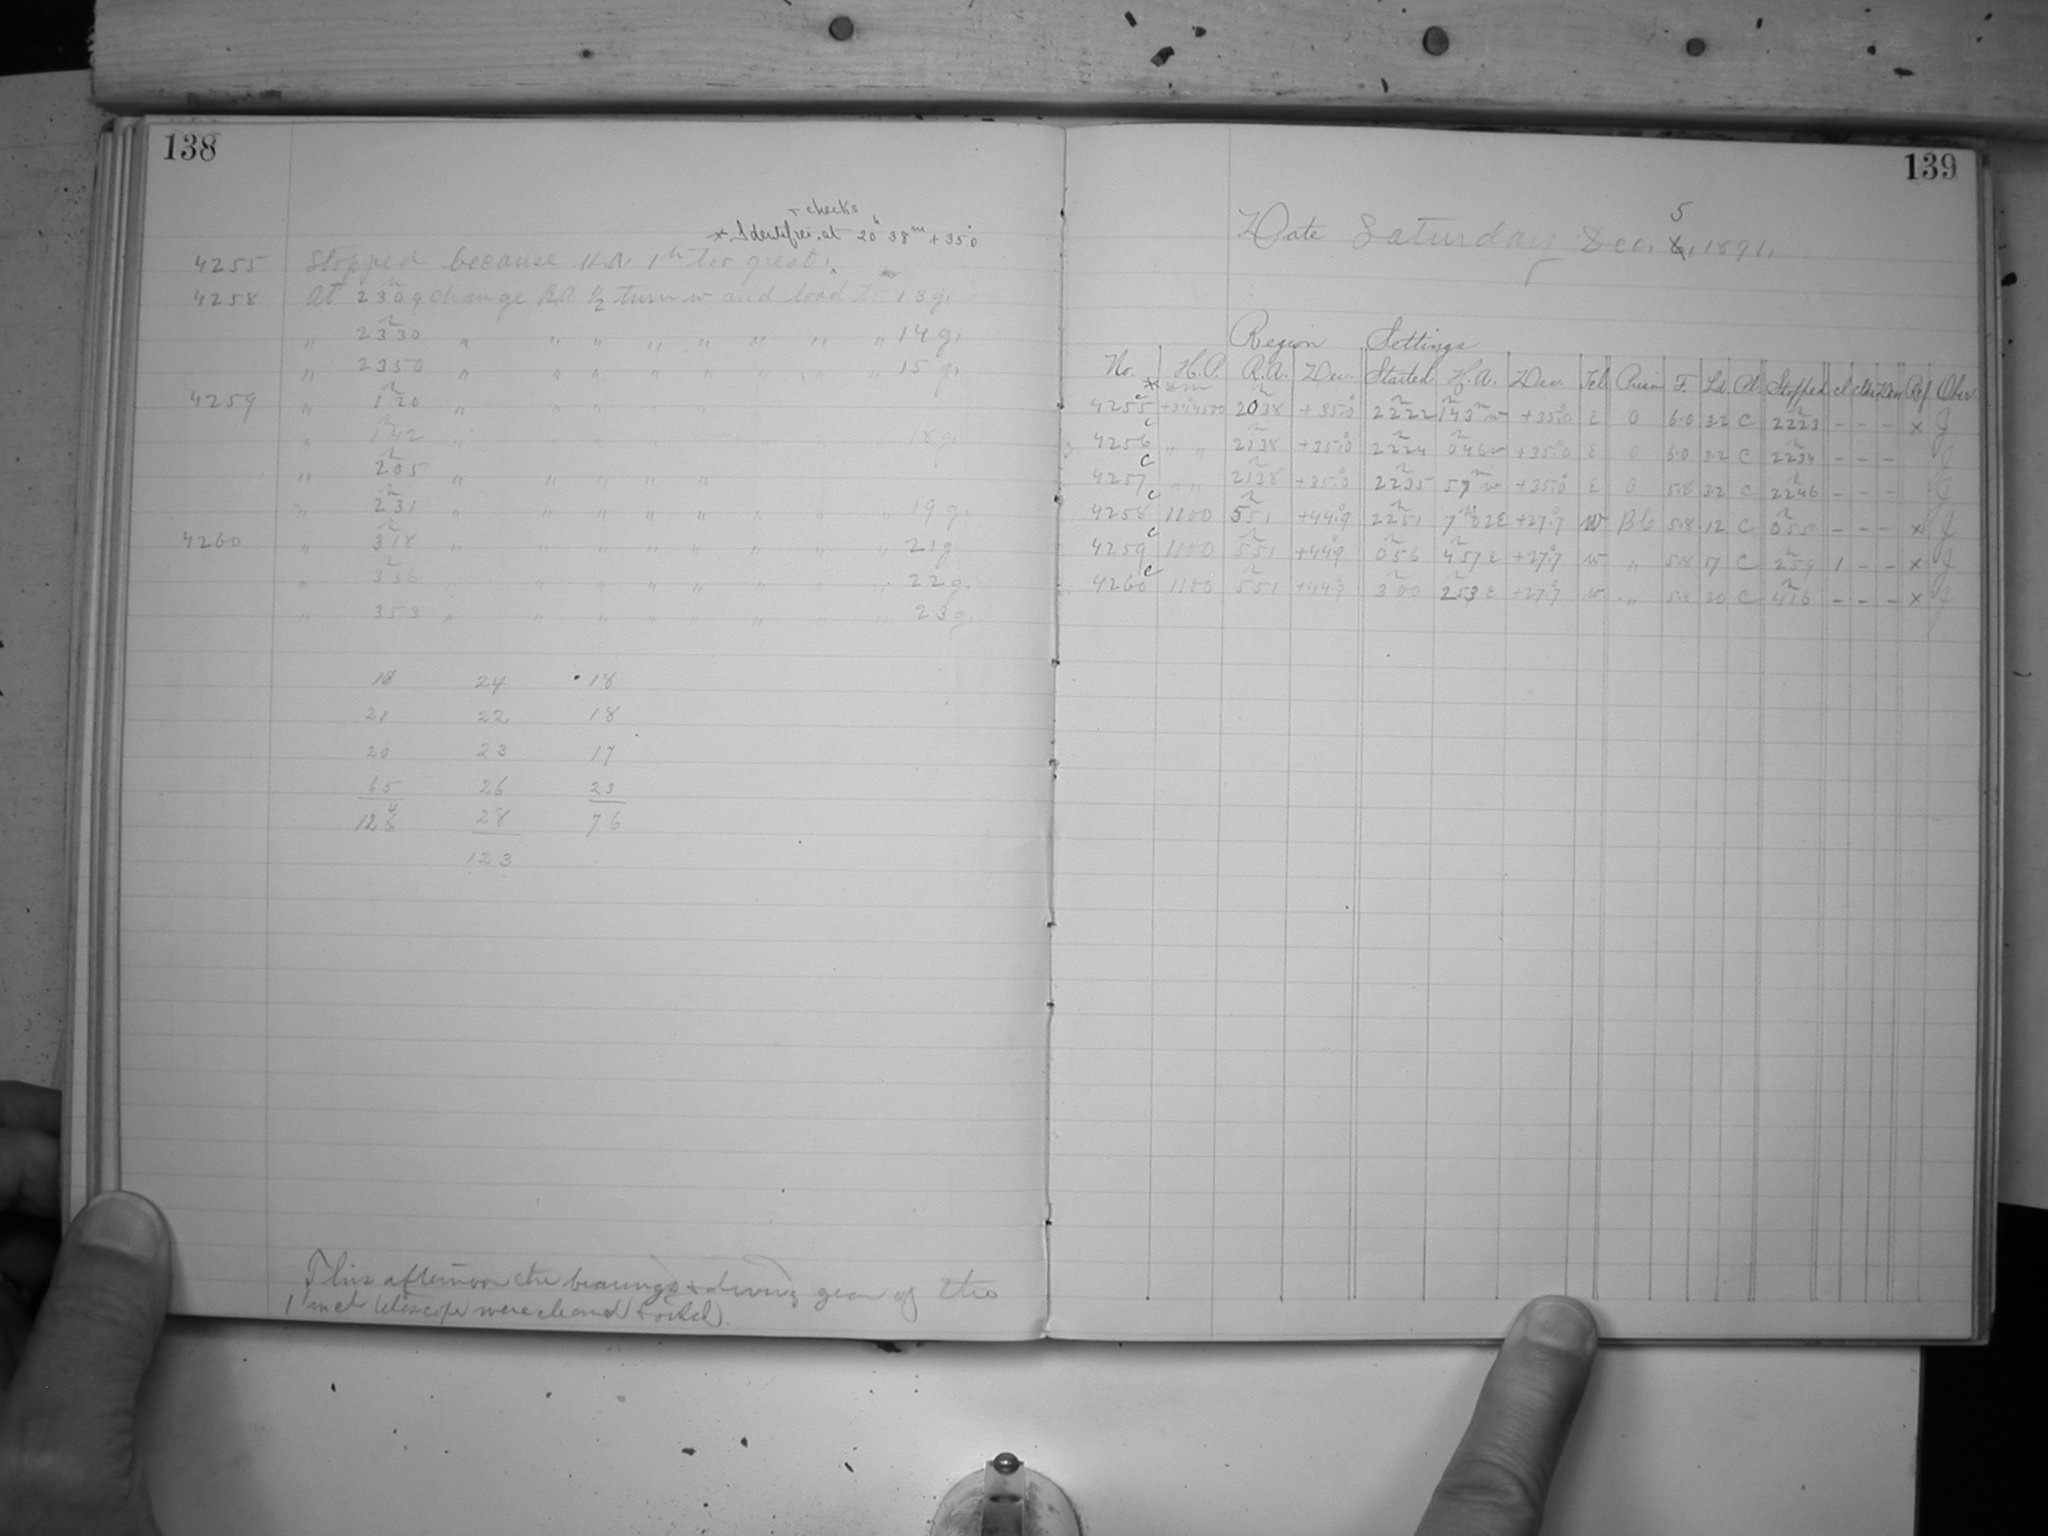 138
+ checks
* Identifies at 20h 38m +35°.0
4255 Stopped because H.A. 1h too great.
4258 At 23h09 change R.A. 1/2 turn w and load to 13g.
" 23h30 " " " " " " " " 14g.
" 23h50 " " " " " " " " 15g.
4259 " 1h20 " " " " "
" 1h42 " " " " " " " " 18g.
" 2h05 " " " " "
" 2h31 " " " " " " " " 19g.
4260 " 3h18 " " " " " " " " 21g
" 3h36 " " " " " " " " 22g.
" 353 " " " " " " " " 23g.
18 24 18
21 22 18
20 23 17
65 26 23
124 28 76
123
This afternoon the bearings & driving gear of the
11 inch telescope were cleaned & oiled.
139
Date Saturday Dec. 5, 1891.
Region Settings
No. H.P. R.A. Dec. Started H.A. Dec. Tel. Prism F. Ld. Pl. Stopped cl Ref. Obser.
4255 c +34°4500 2038 +35°.0 22h22 1h43m w +35°.0 E 0 6.0 32 C 22h23 - - - x J
4256 c " " 21h38 +35°.0 22h24 0h46w +35°.0 E 0 6.0 32 C 22h34 - - - J
4257 c " " 21h38 +35°.0 22h35 57m w +35°.0 E 0 5.8 32 C 22h46 - - - J
4258 c 1100 5h51 +44°.9 22h51 7h02E +27°.7 w B6 5.8 12 C 0h55 - - - x J
4259 c 1100 5h51 +44°.9 0h56 4h57E +27°.7 w " 5.8 17 C 2h59 1 - - x J
4260 c 1100 5h51 +44°.9 3h00 2h53E +27°.7 w " 5.8 20 C 4h16 - - - x J